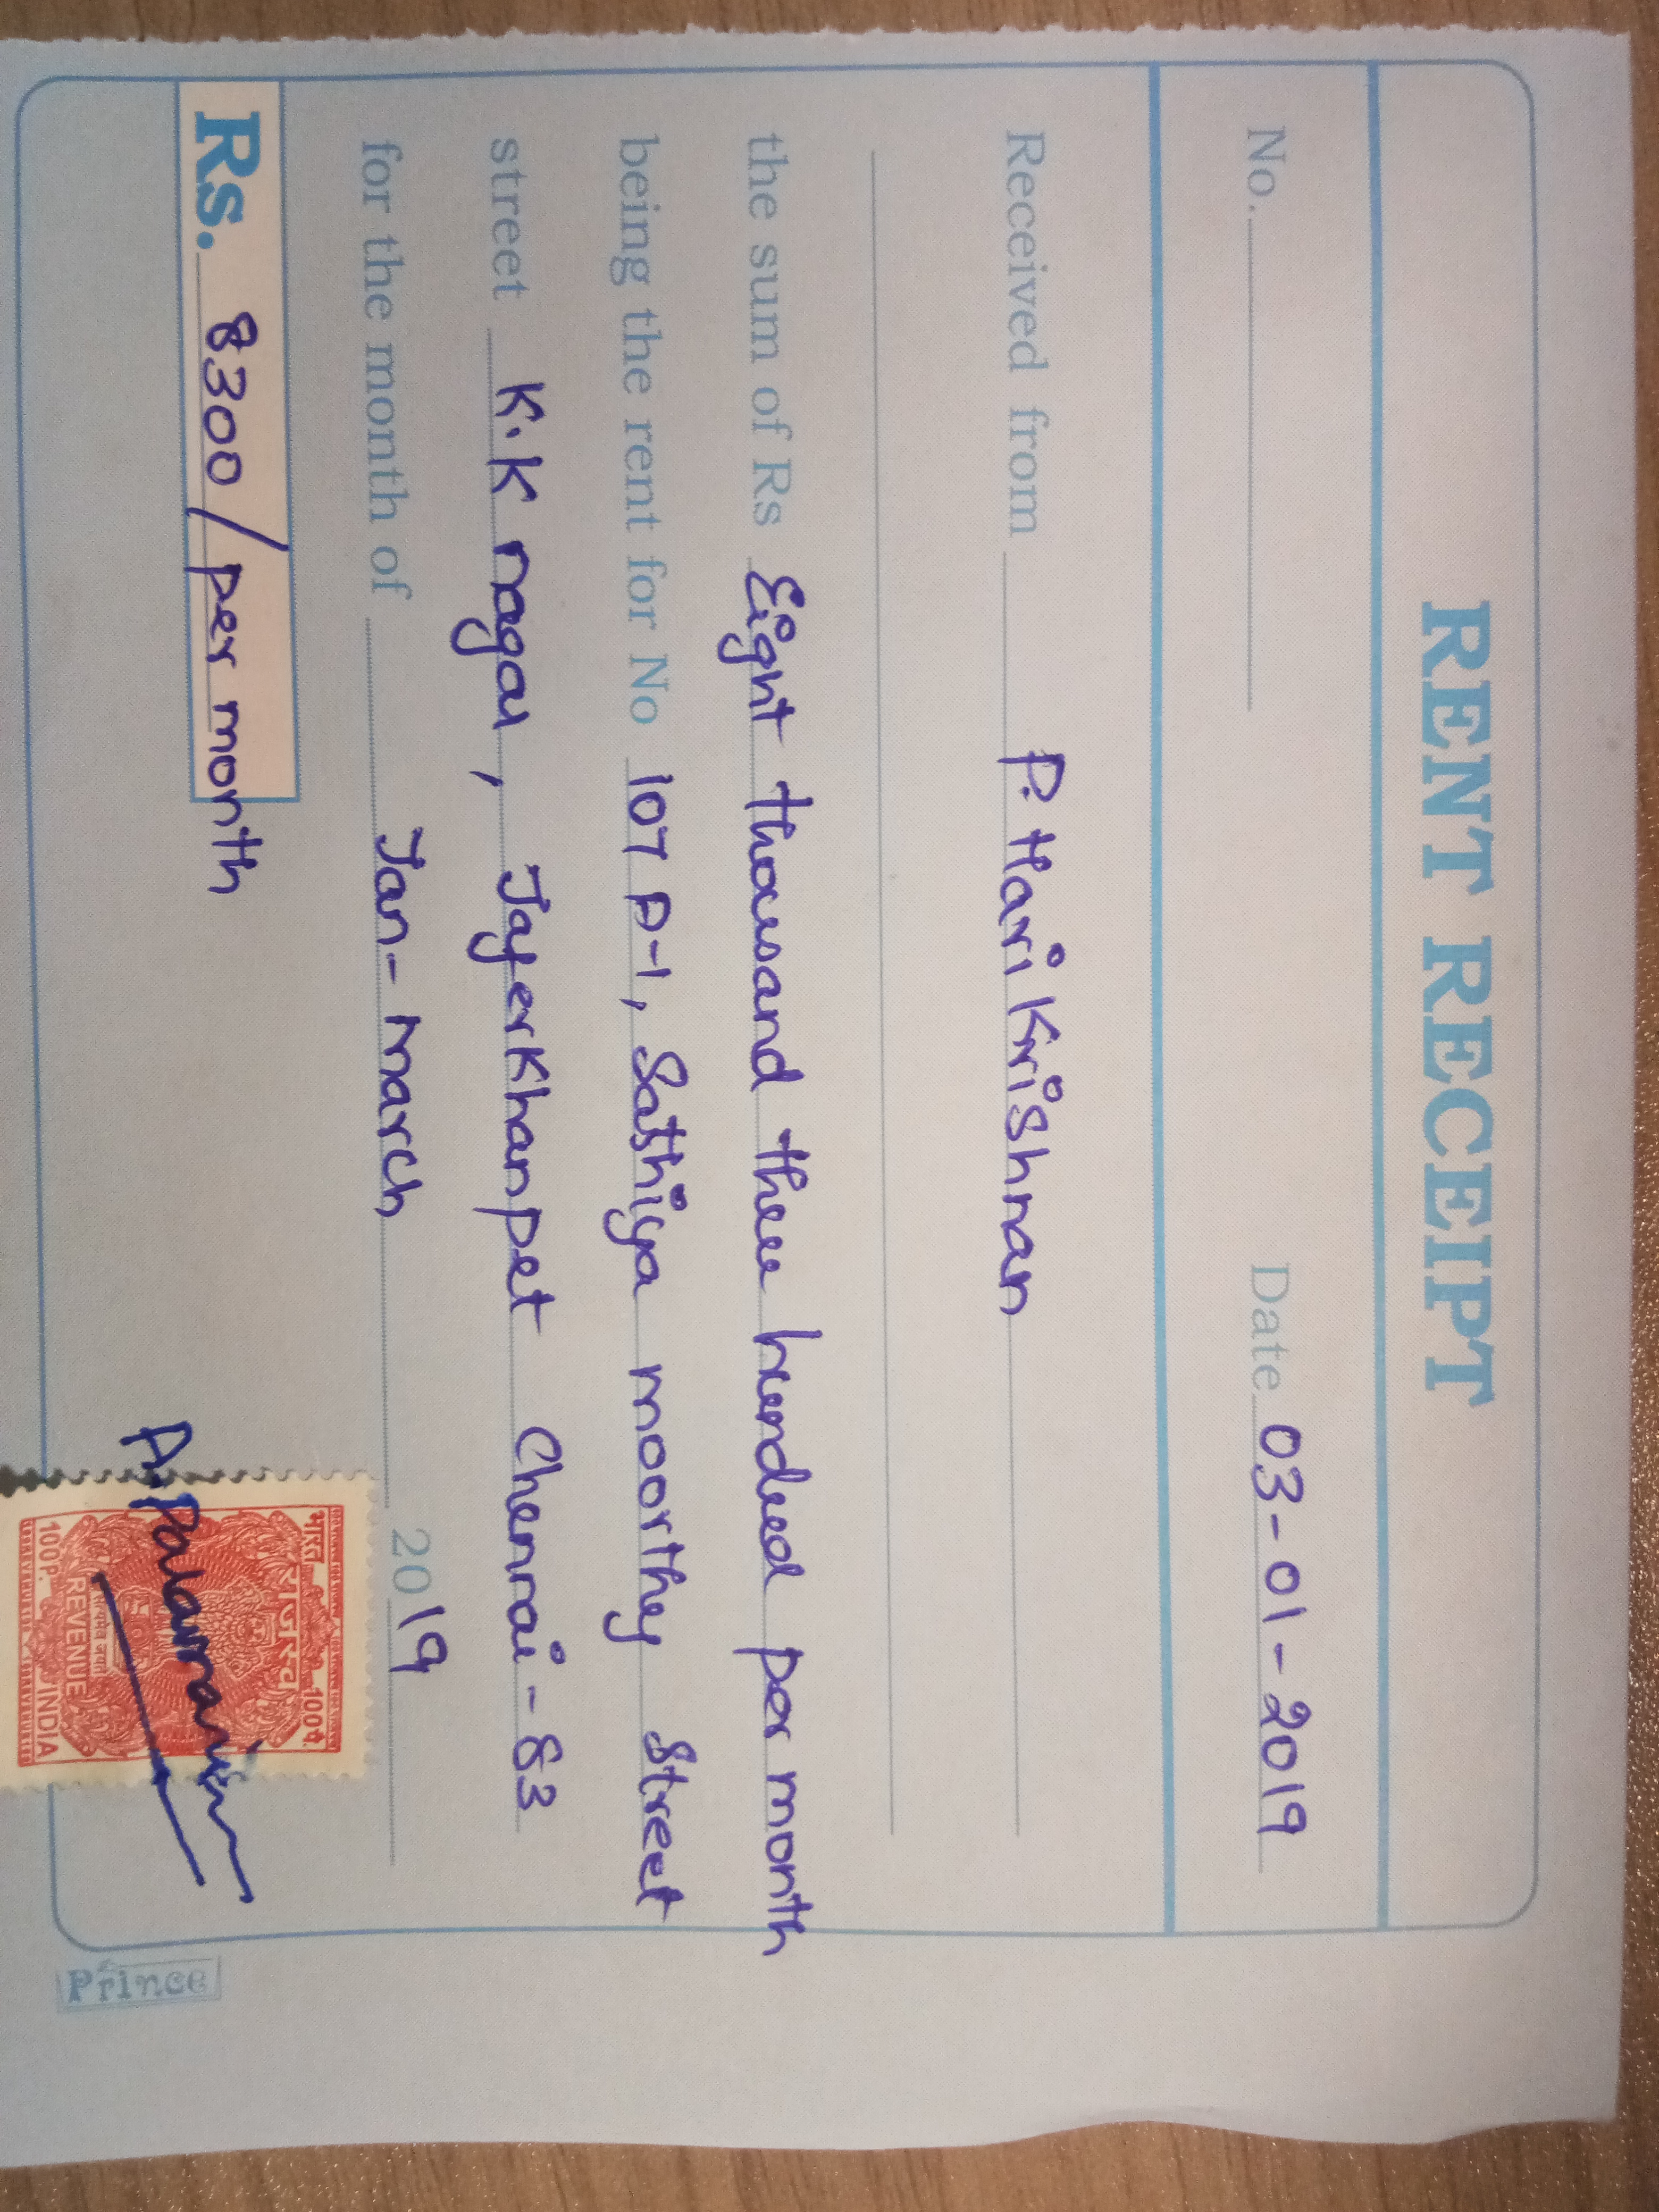 RENT RECEIPT
No. Date 03-01-2019
Received from P. Hari Krishnan
the sum of Rs Eight thousand three hundred per month
being the rent for No 107 P-1, Sathiya moorthy Street
street K.K nagar, Jaferkhanpet Chennai-83
for the month of Jan-March 2019
Rs. 8300/per month
A. Palani
भारत राजस्व 100प.
REVENUE
100P. INDIA
Prince